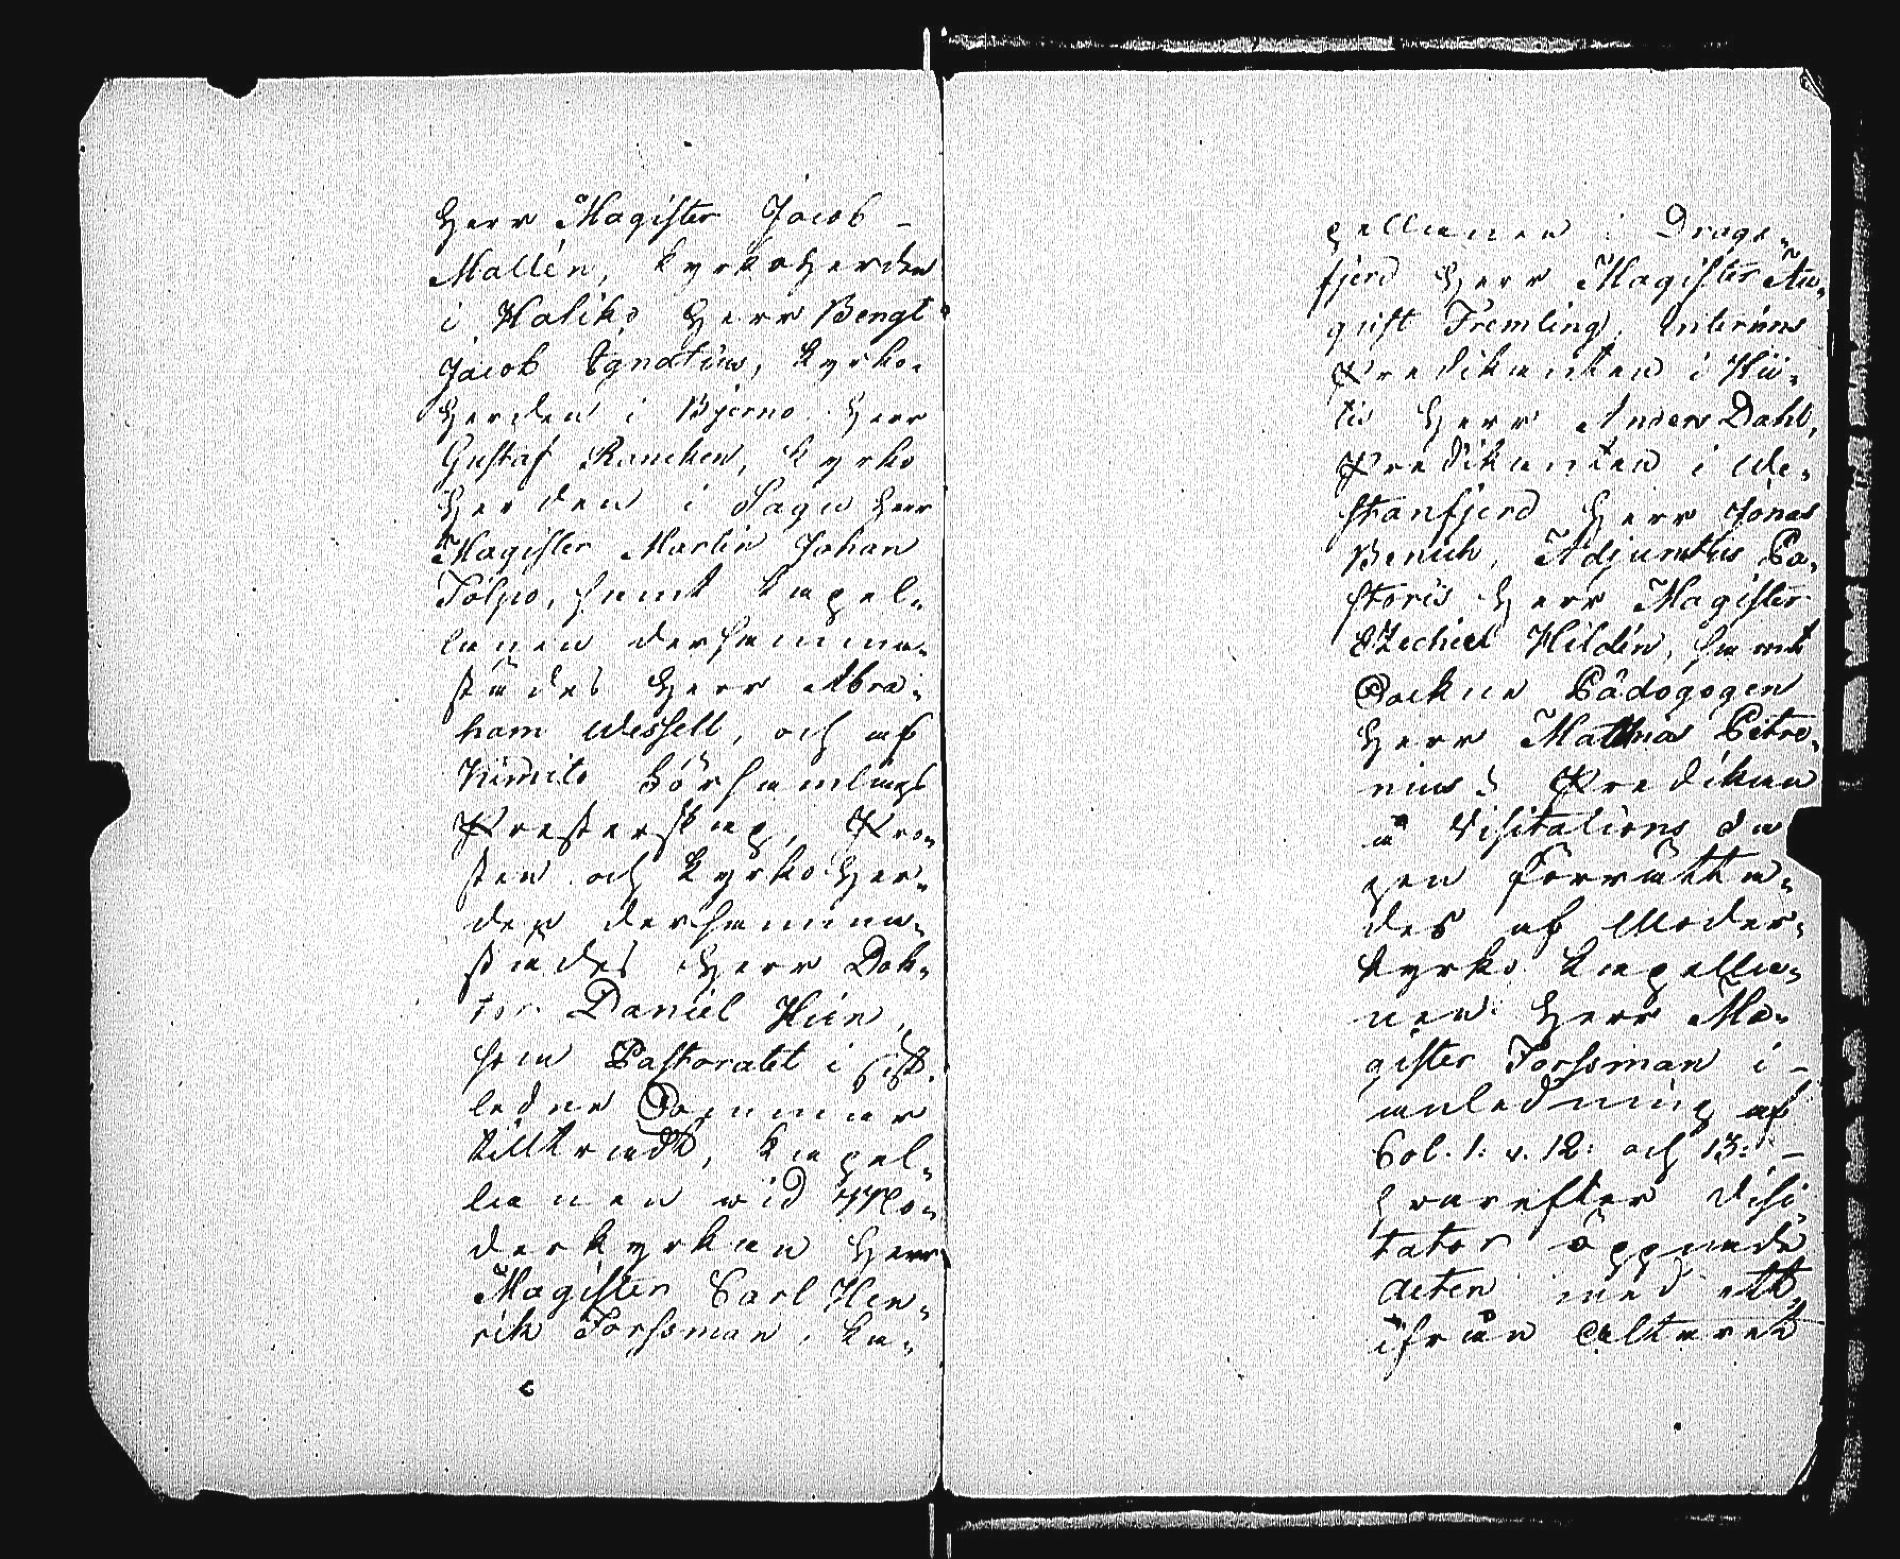 Herr Magister Jacob
Mallén, Kyrkoherden
i Haliko Herr Bengt
Jacob Ignatius, Kyrko-
herden i Bjerno Herr
Gustaf Rancken, Kyrko
herden i Sagu Herr
Magister Martin Johan
Tolpo, samt Capel-
lanen dersamma-
städes Herr Abra-
ham Wessell, och af
Kimito församlings
Presterskap, Pro-
sten och Kyrkoher-
den dersamma-
städes Herr Dok-
tor Daniel
som Pastoratet i sist-
ledne Sommar
tillträdt, Capel-
lanen wid Mo-
derkyrkan Herr
Magister Carl Hen-
rik Forssman, Ca-
pellanen i Drags-
fjerd Herr Magister Au-
gust Fremling, Interims
Predikanten i Hii-
tis Herr Anders Dahl,
Predikanten i We-
stanfjerd Herr Jonas
Adjunctus Pa-
storis Herr Magister
Ezechiel Hildén, samt
Sockne Pädagogen
Herr Mathias Petre-
nius; Predikan
å Visitations da
gen förrätta-
des af Moder-
kyrko Capella-
nen Herr Ma-
gister Forssman i
anledning af
Col. 1: v. 12: och 13:
hvarefter Visi-
tator öppnade
acten med ett
ifrån Altaret